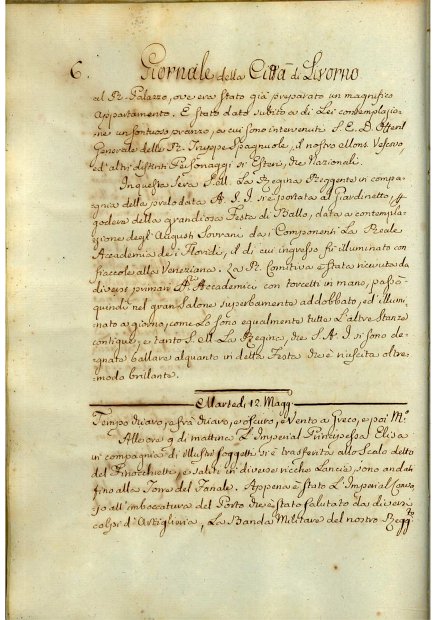 6. Giornale della Città di Livorno
al R. Palazzo, ove era stato già preparato un magnifico
Appartamento. È stato dato subito a di Lei contemplazio-
ne un sontuoso pranzo, a cui sono intervenuti S. E. D.
Generale delle R. Truppe Spagnuole, il nostro Mons. Vescovo,
ed altri distinti Personaggi sì Esteri, che Nazionali.
In questa Sera S. M. La Regina Reggente in compa-
gnia della prelodata A. I. si è portata al Giardinetto, p.
godere della grandiosa Festa di Ballo, data a contempla-
zione degl'Augusti Sovrani da i Componenti La Reale
Accademia de i Floridi, il di cui ingresso fù illuminato con
fiaccole alla Veneziana. La R. Comitiva è stata ricevuta da
diversi primari Accademici con torcetti in mano, passò
quindi nel gran Salone superbamente addobbato, ed illumi-
nato a giorno, come lo sono egualmente tutte L'altre Stanze
contigue, e tanto S. M. La Regina, che S. A. I. si sono de-
gnate ballare alquanto in detta Festa che è riuscita oltre-
modo brillante.
Martedì, 12. Magg.
Tempo chiaro, e frà chiaro, e oscuro, e Vento a Greco, e poi M.
Alle ore 9 di mattina L'Imperial Principessa Elisa
in compagnia di illustri soggetti si è trasferita allo Scalo detto
del Finocchietti, e saliti in diverse ricche Lancie, sono andati
fino alla Torre del Fanale. Appena è stato L'Imperial
all'imboccatura del Porto che è stato salutato da diversi
colpi d'Artiglieria, La Banda Militare del nostro Regg.to